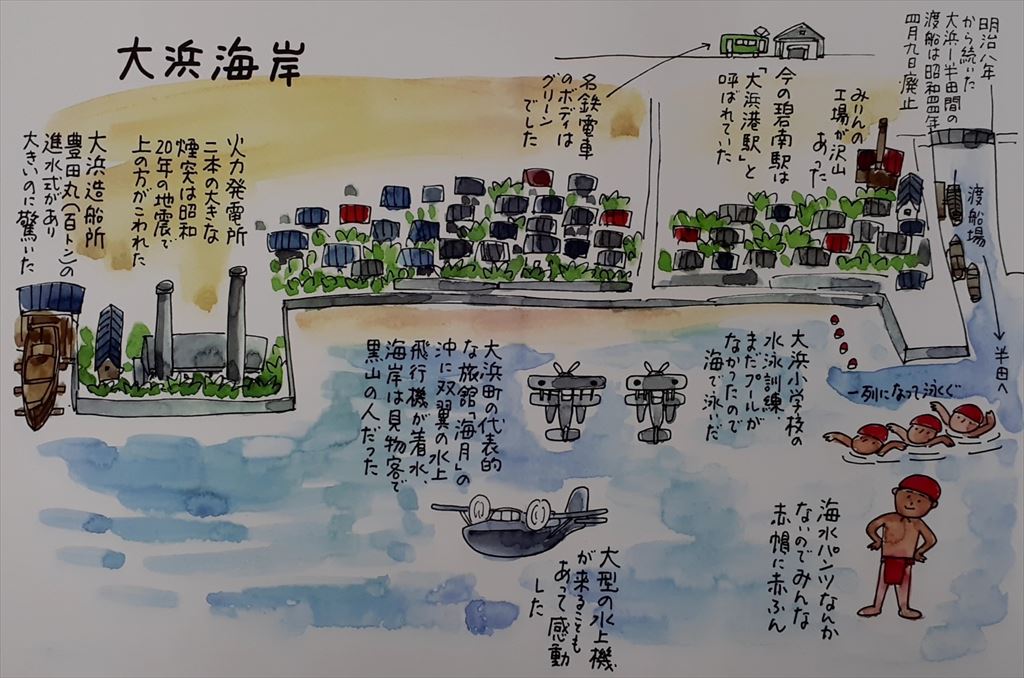 大浜海岸
明治八年
から続いた
大浜ー半田間の
渡船は昭和四四年
四月九日廃止
渡船場
半田へ
みりんの
工場が沢山
あった
今の碧南駅は
「大浜港駅」と
呼ばれていた
名鉄電車
のボディは
グリーン
でした
火力発電所
二本の大きな
煙突は昭和
20年の地震で
上の方がこわれた
大浜造船所
豊田丸(百トン)の
進水式があり
大きいのに驚いた
大浜小学校の
水泳訓練、
まだプールが
なかったので
海で泳いだ
一列になって泳ぐ
大浜町の代表的
な旅館「海月」の
沖に双翼の水上
飛行機が着水、
海岸は見物客で
黒山の人だった
海水パンツなんか
ないのでみんな
赤帽に赤ふん
大型の水上機
が来ることも
あって感動
した